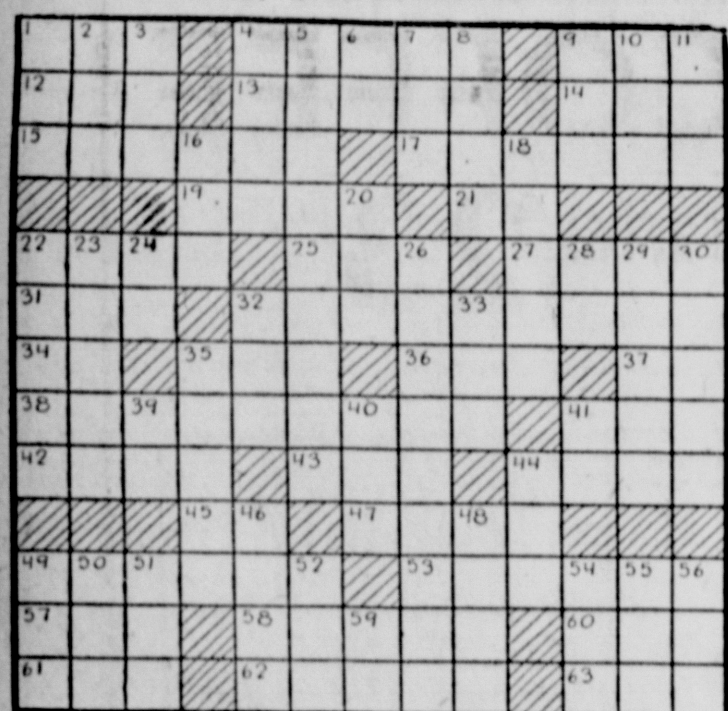 1 2 3 4 5 6 7 8 9 10 11
12 13 14
15 16 17 18
19 20 21
22 23 24 25 26 27 28 29 30
31 32 33
34 35 36 37
38 39 40 41
42 43 44
45 46 47 48
49 50 51 52 53 54 55 56
57 58 59 60
61 62 63